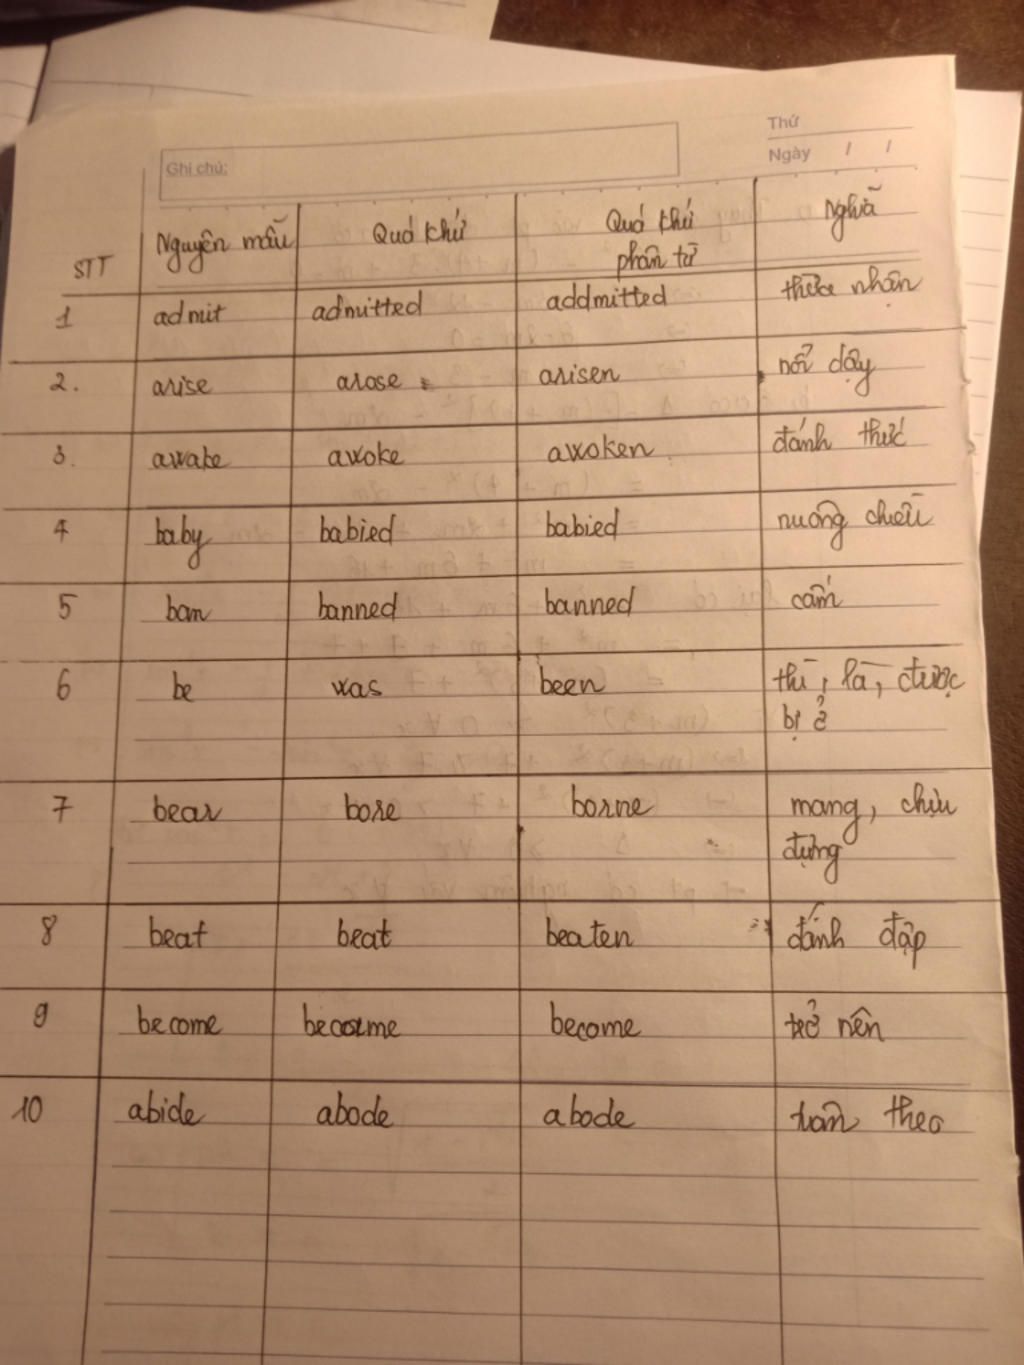 Thứ
Ghi chú:
Ngày / /
STT Nguyên mẫu Quá khứ Quá khứ phân từ Nghĩa
1 admit admitted addmitted thừa nhận
2. arise arose arisen nổi dậy
3. awake awoke awoken đánh thức
4 baby babied babied nuông chiều
5 ban banned banned cấm
6 be was been thì, là, được
bị ở
7 bear bore borne mang, chịu
đựng
8 beat beat beaten đánh đập
9 become became become trở nên
10 abide abode abode tuân theo